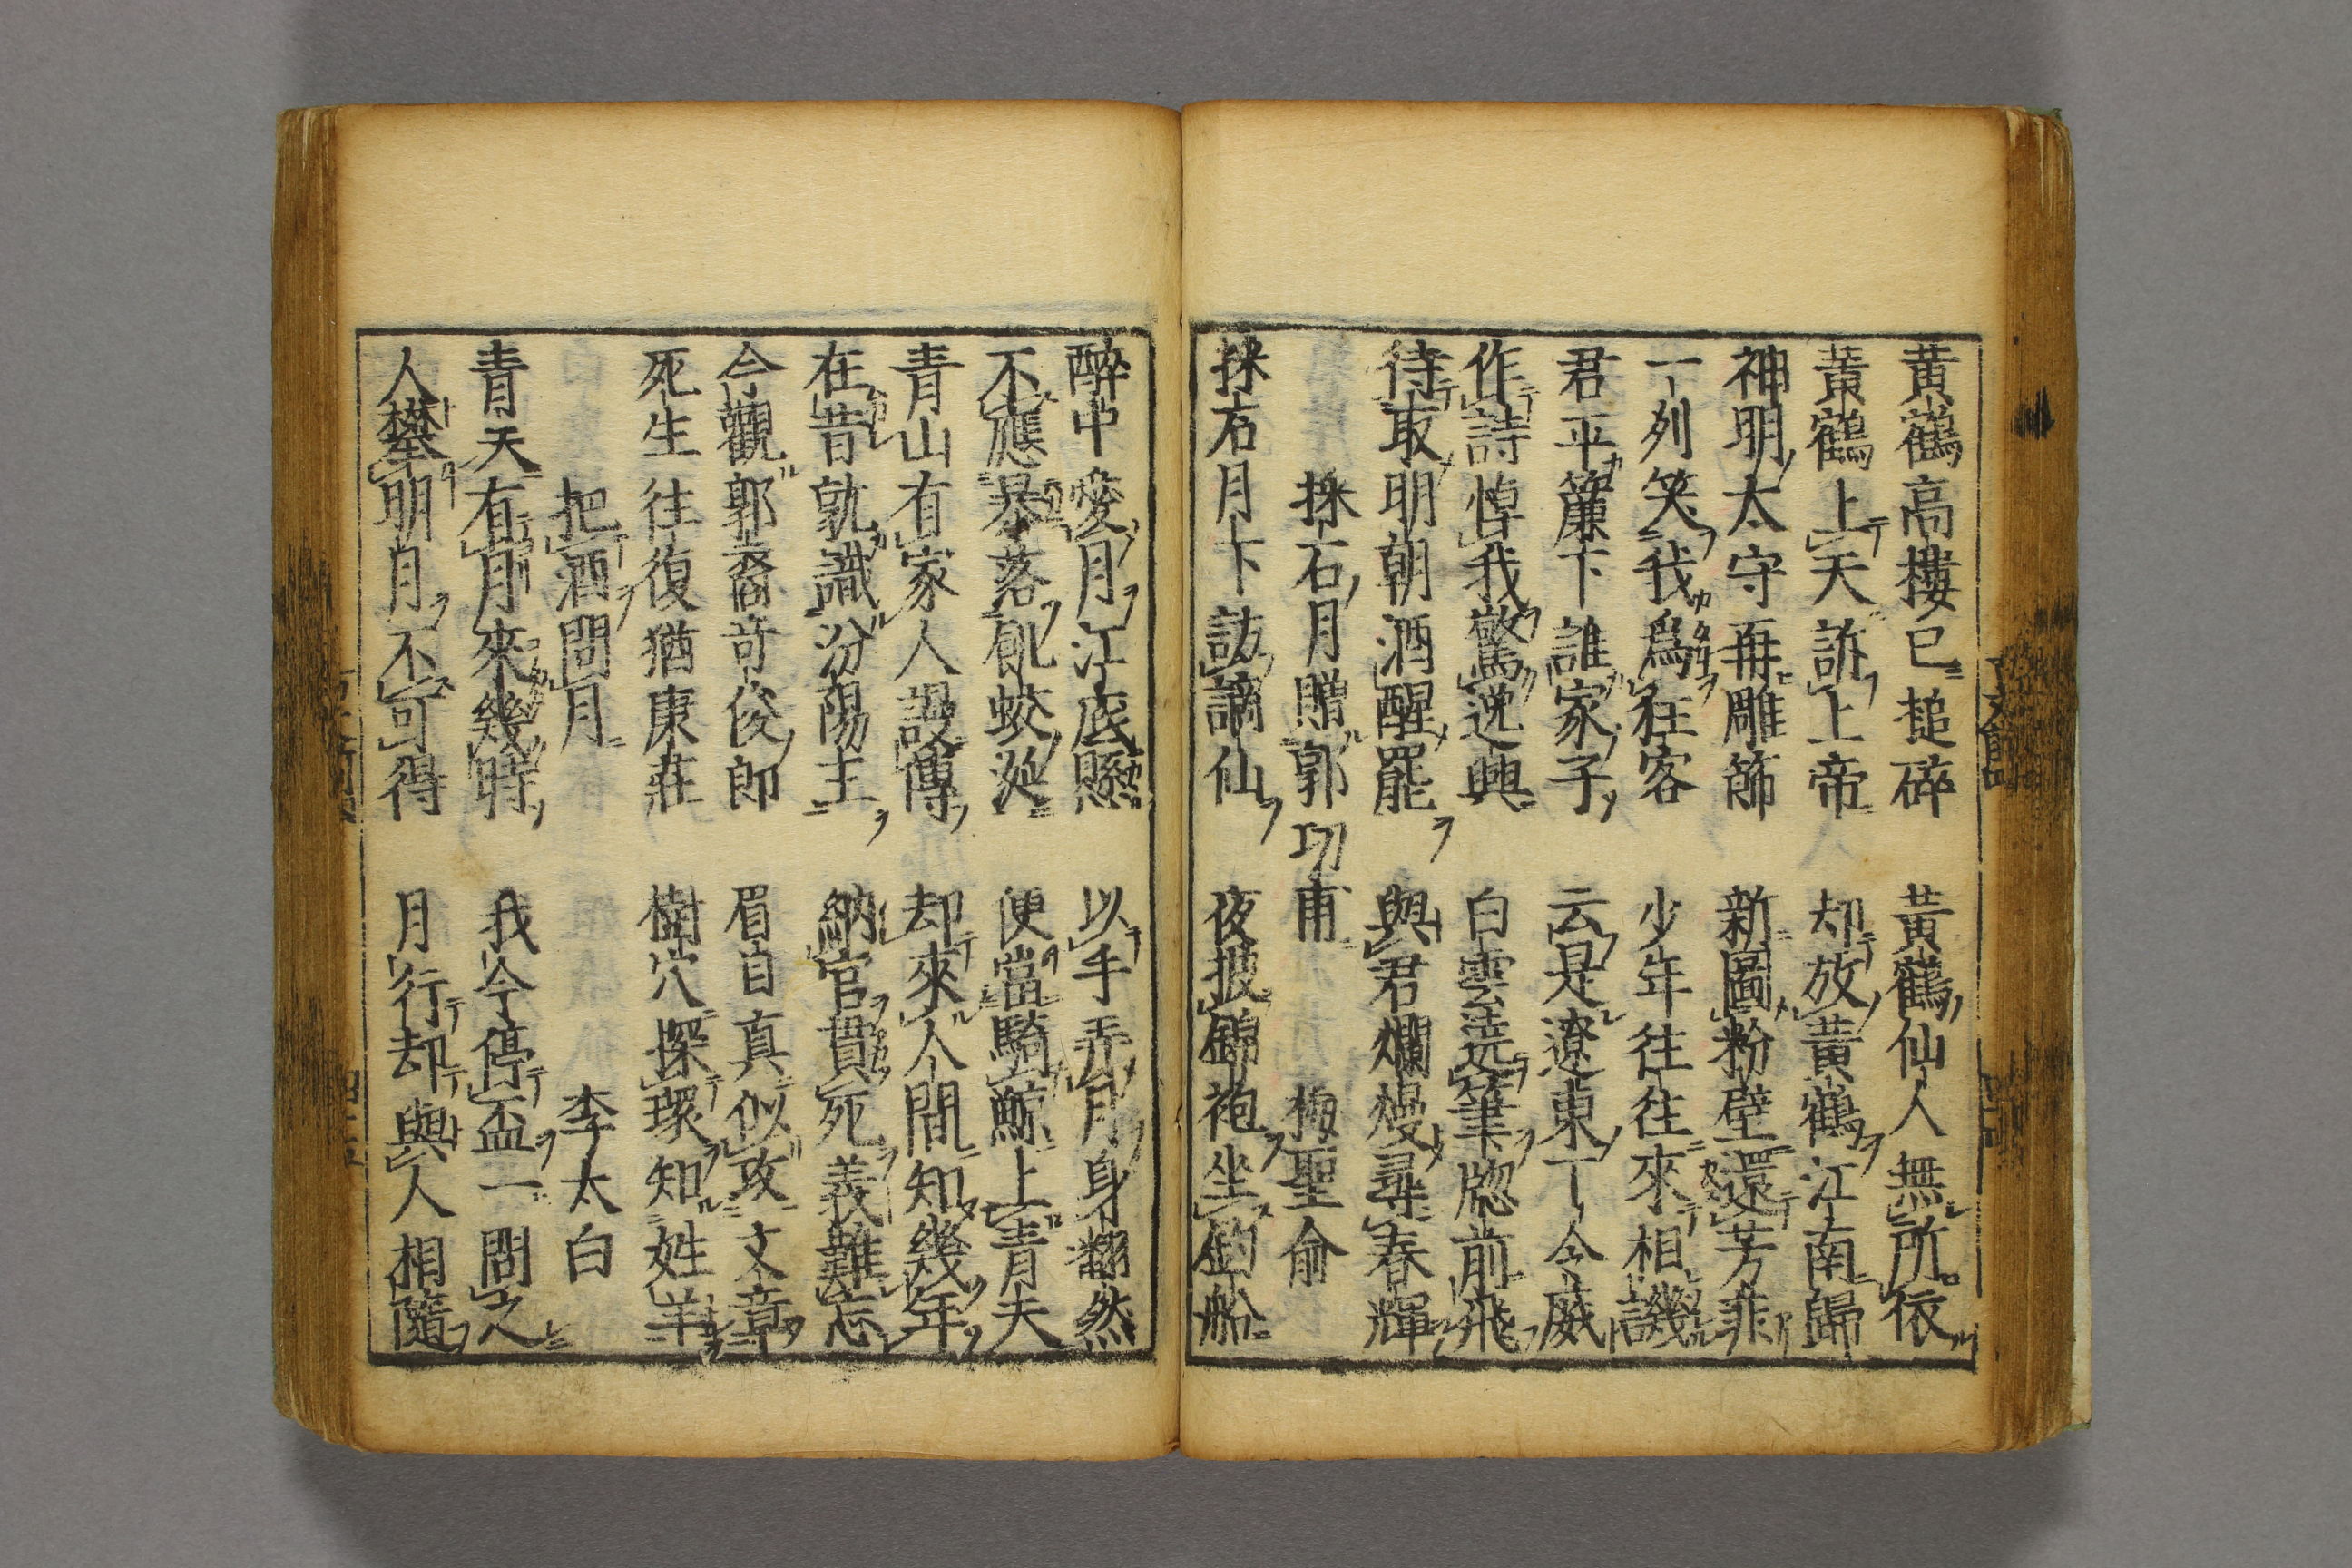 黄鶴高樓已搥碎　黄鶴仙人無所依
黄鶴上天訴上帝　却放黄鶴江南歸
神明太守再雕篩　新圖粉壁還芳菲
一列笑我爲狂客　少年往往來相譏
君平簾下誰家子　云是遼東丁令威
作詩悼我驚逸興　白雲遶筆牕前飛
待取明朝酒醒罷　與君爛熳尋春輝
採石月贈郭功甫　梅聖俞
採石月下訪謫仙　夜披錦袍坐釣船
醉中愛月江底懸　以手弄月身翻然
不應暴落飢蛟涎　便當騎鯨上青天
青山有冢人謾傳　却來人間知幾年
在昔孰識汾陽王　納官貰死義難忘
今觀郭裔奇俊郎　眉目真似攻文章
死生往復猶康莊　樹穴探環知姓羊
把酒問月　李太白
青天有月來幾時　我今停盃一問之
人攀明月不可得　月行却與人相隨